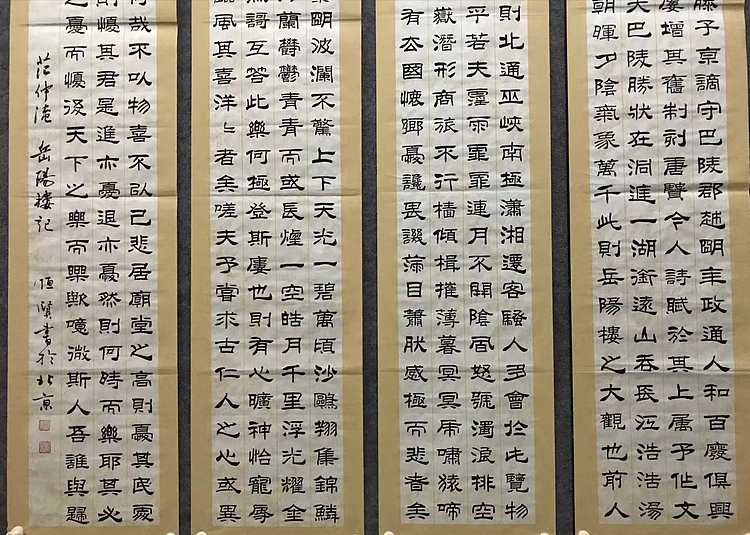 滕子京謫守巴陵郡越明年政通人和百廢俱興
增其舊制刻唐賢今人詩賦於其上屬予作文
夫巴陵勝狀在洞庭一湖銜遠山吞長江浩浩湯
朝暉夕陰氣象萬千此則岳陽樓之大觀也前人
則北通巫峽南極瀟湘遷客騷人多會於此覽物
乎若夫霪雨霏霏連月不開陰風怒號濁浪排空
嶽潛形商旅不行檣傾楫摧薄暮冥冥虎嘯猿啼
有去國懷鄉憂讒畏譏滿目蕭然感極而悲者矣
明波瀾不驚上下天光一碧萬頃沙鷗翔集錦鱗
蘭鬱鬱青青而或長煙一空皓月千里浮光耀金
歌互答此樂何極登斯樓也則有心曠神怡寵辱
風其喜洋洋者矣嗟夫予嘗求古仁人之心或異
何哉不以物喜不以己悲居廟堂之高則憂其民處
則憂其君是進亦憂退亦憂然則何時而樂耶其必
之憂而憂後天下之樂而樂歟噫微斯人吾誰與歸
范仲淹 岳陽樓記 恒賢書於北京